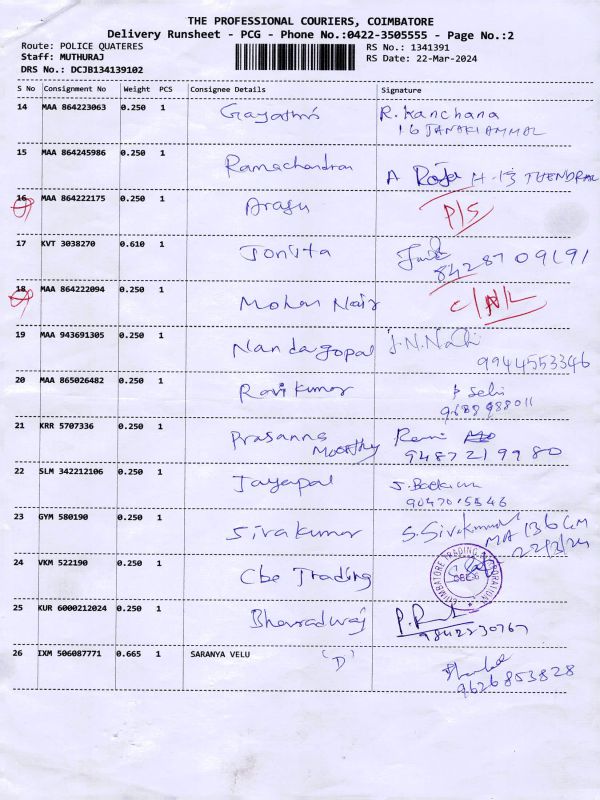 THE PROFESSIONAL COURIERS, COIMBATORE
Delivery Runsheet - PCG - Phone No.:0422-3505555 - Page No.:2
Route: POLICE QUATERES RS No.: 1341391
Staff: MUTHURAJ RS Date: 22-Mar-2024
DRS No.: DCJB134139102
S No Consignment No Weight PCS Consignee Details Signature
14 MAA 864223063 0.250 1 Gayathri R. Kanchana
16 JANAKI AMMAL
15 MAA 864245986 0.250 1 Ramachandran A Roja H-13 THENDRAL
16 MAA 864222175 0.250 1 Arasu P/S
17 KVT 3038270 0.610 1 Jonita
8428709191
18 MAA 864222094 0.250 1 Mohan Nair C/N/L
19 MAA 943691305 0.250 1 Nandagopal J.N.
9944553346
20 MAA 865026482 0.250 1 Ravi Kumar P Selvi
9688988011
21 KRR 5707336 0.250 1 Prasanna Moorthy Revi
9487219980
22 SLM 342212106 0.250 1 Jayapal J.
9047015546
23 GYM 580190 0.250 1 Sivakumar S. Sivakumar
MA 136 GM
22/3/24
24 VKM 522190 0.250 1 Cbe Trading COIMBATORE TRADING CORPORATION
CBE
25 KUR 6000212024 0.250 1 Bharadwaj P.
9842230767
26 IXM 506087771 0.665 1 SARANYA VELU 'D'
9626853828